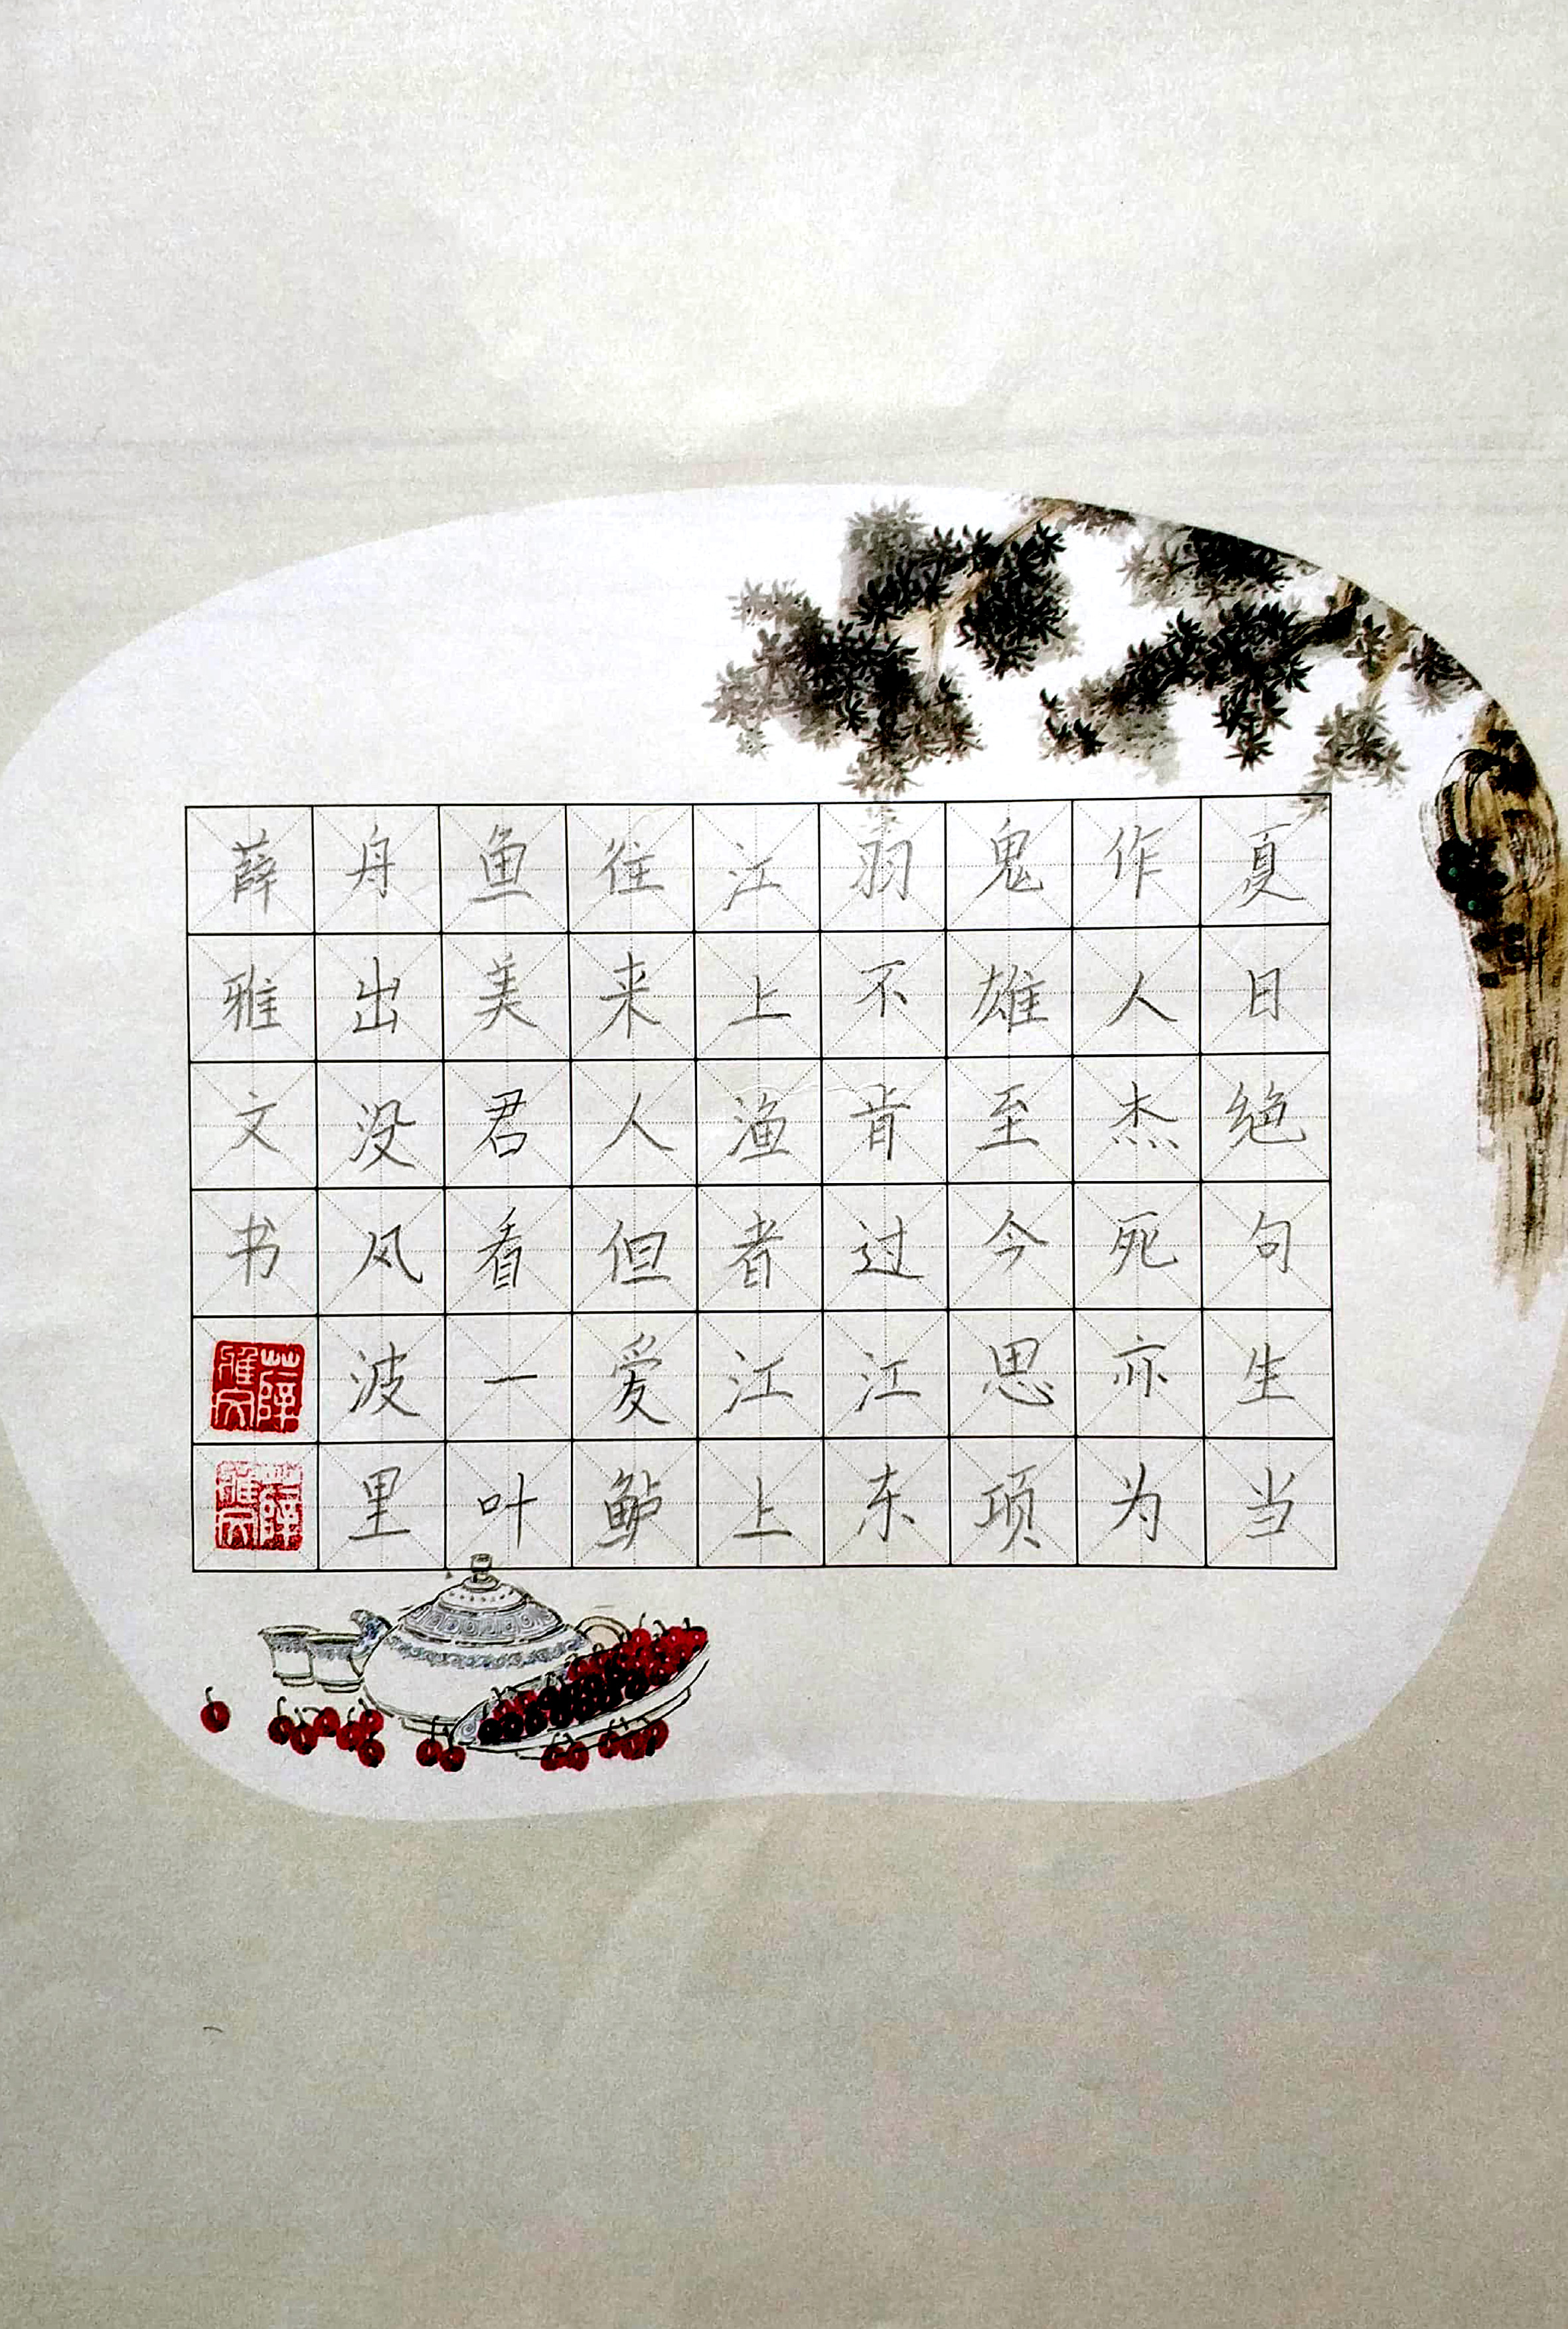 夏日绝句生当
作人杰死亦为
鬼雄至今思项
羽不肯过江东
江上渔者江上
往来人但爱鲈
鱼美君看一叶
舟出没风波里
薛雅文书
薛雅文
薛雅文